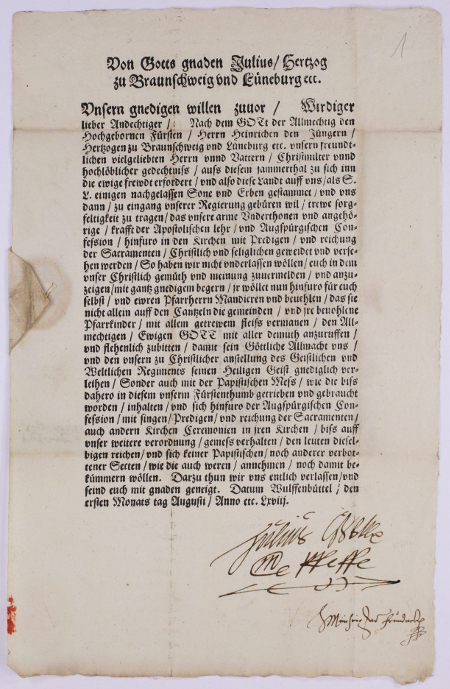 1
Von Gotts gnaden Julius/ Hertzog
zu Braunschweig vnd Lüneburg etc.
Vnsern gnedigen willen zuuor / Wirdiger
lieber Andechtiger / Nach dem GOTt der Allmechtig den
Hochgebornen Fürsten / Herrn Heinrichen den Jüngern /
Hertzogen zu Braunschweig vnd Lüneburg etc. vnsern freundt-
lichen vielgeliebten Herrn vnnd Vattern / Christmilter vnnd
hochlöblicher gedechtniss / auss diesem jammerthal zu sich inn
die ewige frewdt erfordert / vnd also diese Landt auff vns / als S.
L. einigen nachgelassen Sone vnd Erben gestammet / vnd vns
dann / zu eingang vnserer Regierung gebüren wil / trewe sorg-
feltigkeit zu tragen / das vnsere arme Vnderthonen vnd angehö-
rige / krafft der Apostolischen lehr / vnd Augspürgischen Con-
fession / hinfuro in den Kirchen mit Predigen / vnd reichung
der Sacramenten / Christlich vnd seliglichen geweidet vnd verse-
hen werden / So haben wir nicht vnderlassen wöllen / euch in dem
vnser Christlich gemüth vnd meinung zuuermelden / vnd anzu-
zeigen / mit gantz gnedigem begern / jr wöllet nun hinfuro für euch
selbst / vnd ewren Pfarrherrn Mandieren vnd beuehlen / das sie
nicht allein auff den Cantzeln die gemeinden / vnd jre beuohlene
Pfarrkinder / mit allem getrewem fleiss vermanen / den All-
mechtigen / Ewigen GOTT mit aller demuth anzuruffen /
vnd flehenlich zubitten / damit sein Göttliche Allmacht vns /
vnd den vnsern zu Christlicher anstellung des Geistlichen vnd
Weltlichen Regiments seinen Heiligen Geist gnediglich ver-
leihen / Sonder auch mit der Papistischen Mess / wie die biss
dahero in diesem vnserm Fürstenthumb getrieben vnd gebraucht
worden / inhalten / vnd sich hinfuro der Augspürgischen Con-
fession / mit singen / Predigen / vnd reichung der Sacramenten /
auch andern Kirchen Ceremonien in jren Kirchen / biss auff
vnser weitere verordnung / gemess verhalten / den leuten diesel-
bigen reichen / vnd sich keiner Papistischen / noch anderer verbot-
tener Secten / wie die auch weren / annehmen / noch damit be-
kümmern wöllen. Darzu thun wir vns entlich verlassen / vnd
seind euch mit gnaden geneigt. Datum Wulffenbüttel / den
ersten Monats tag Augusti / Anno etc. Lxviij.
Julius